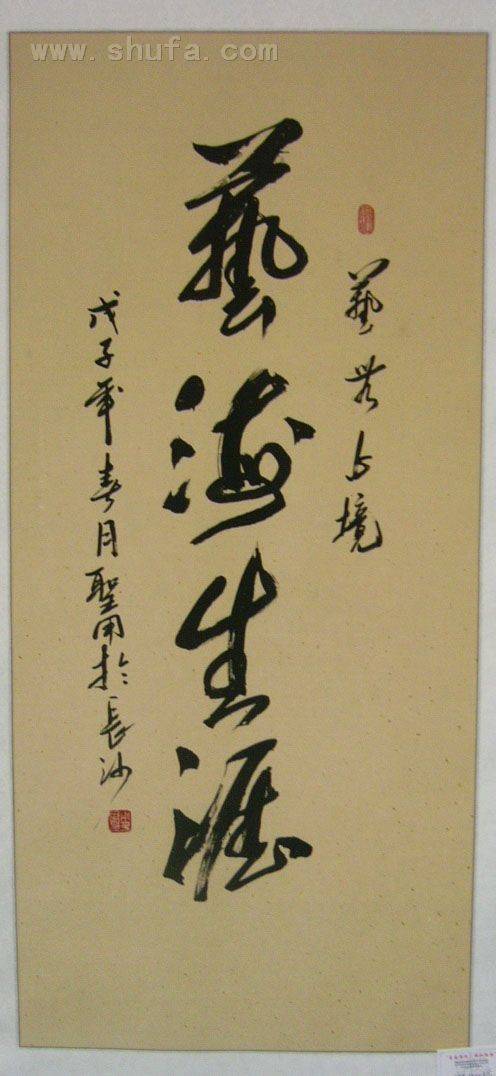 www.shufa.com
藝無止境
藝海生涯
戊子年春月聖於長沙